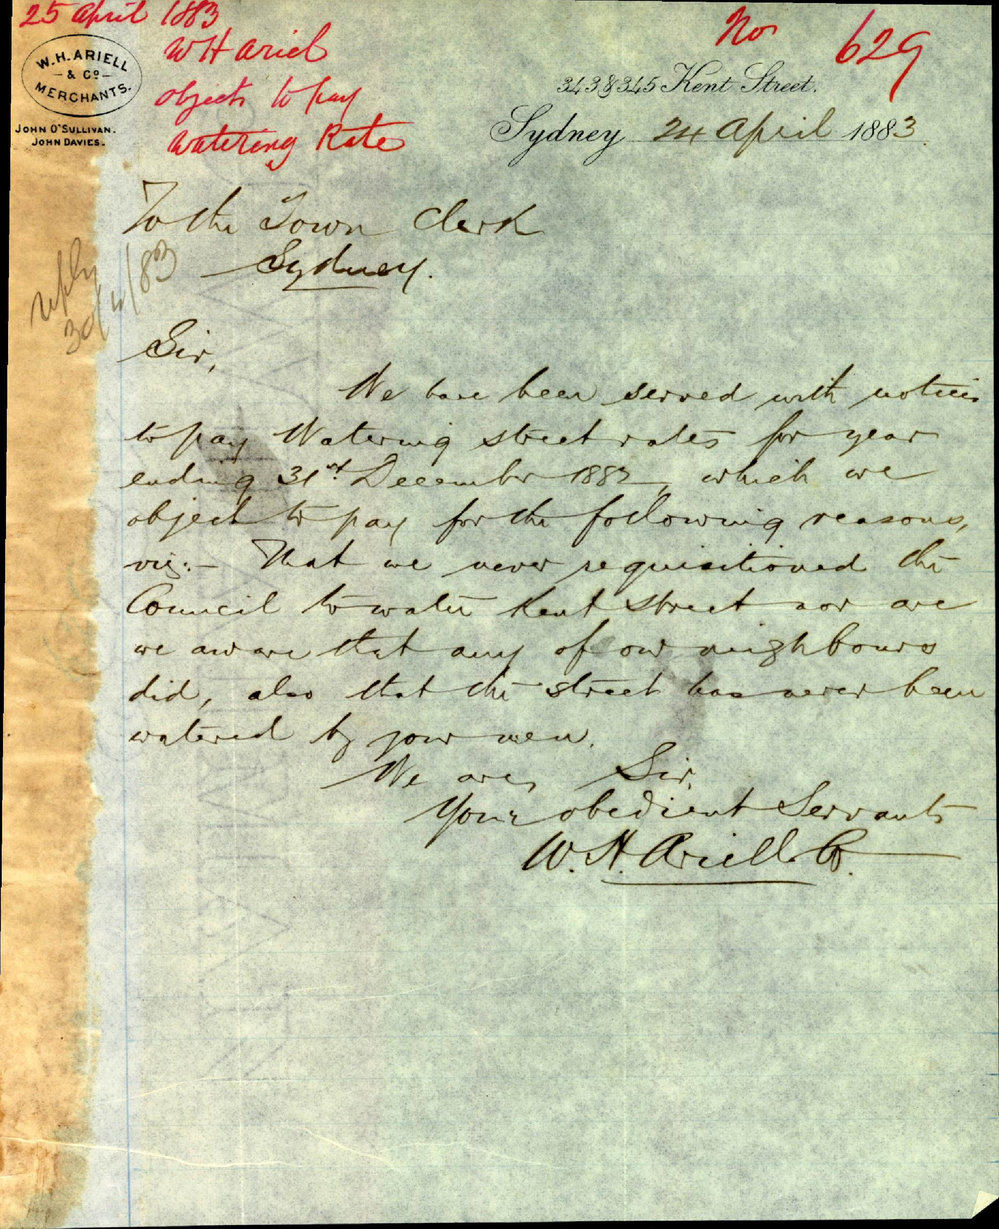 25 April 1883
W H Ariel
objects to pay
Watering Rate
No 629
W. H. ARIELL
& Co
MERCHANTS.
JOHN O'SULLIVAN.
JOHN DAVIES.
343 & 345 Kent Street.
Sydney 24 April 1883
To the Town Clerk
Sydney.
reply
30/4/83
Sir,
We have been served with notices
to pay Watering street rates for year
ending 31st December 1882, which we
object to pay for the following reasons,
viz:- That we never requisitioned the
Council to water Kent Street nor are
we aware that any of our neighbours
did, also that the street has never been
watered by your men.
We are, Sir,
Your obedient Servants
W. H. Ariell & Co.